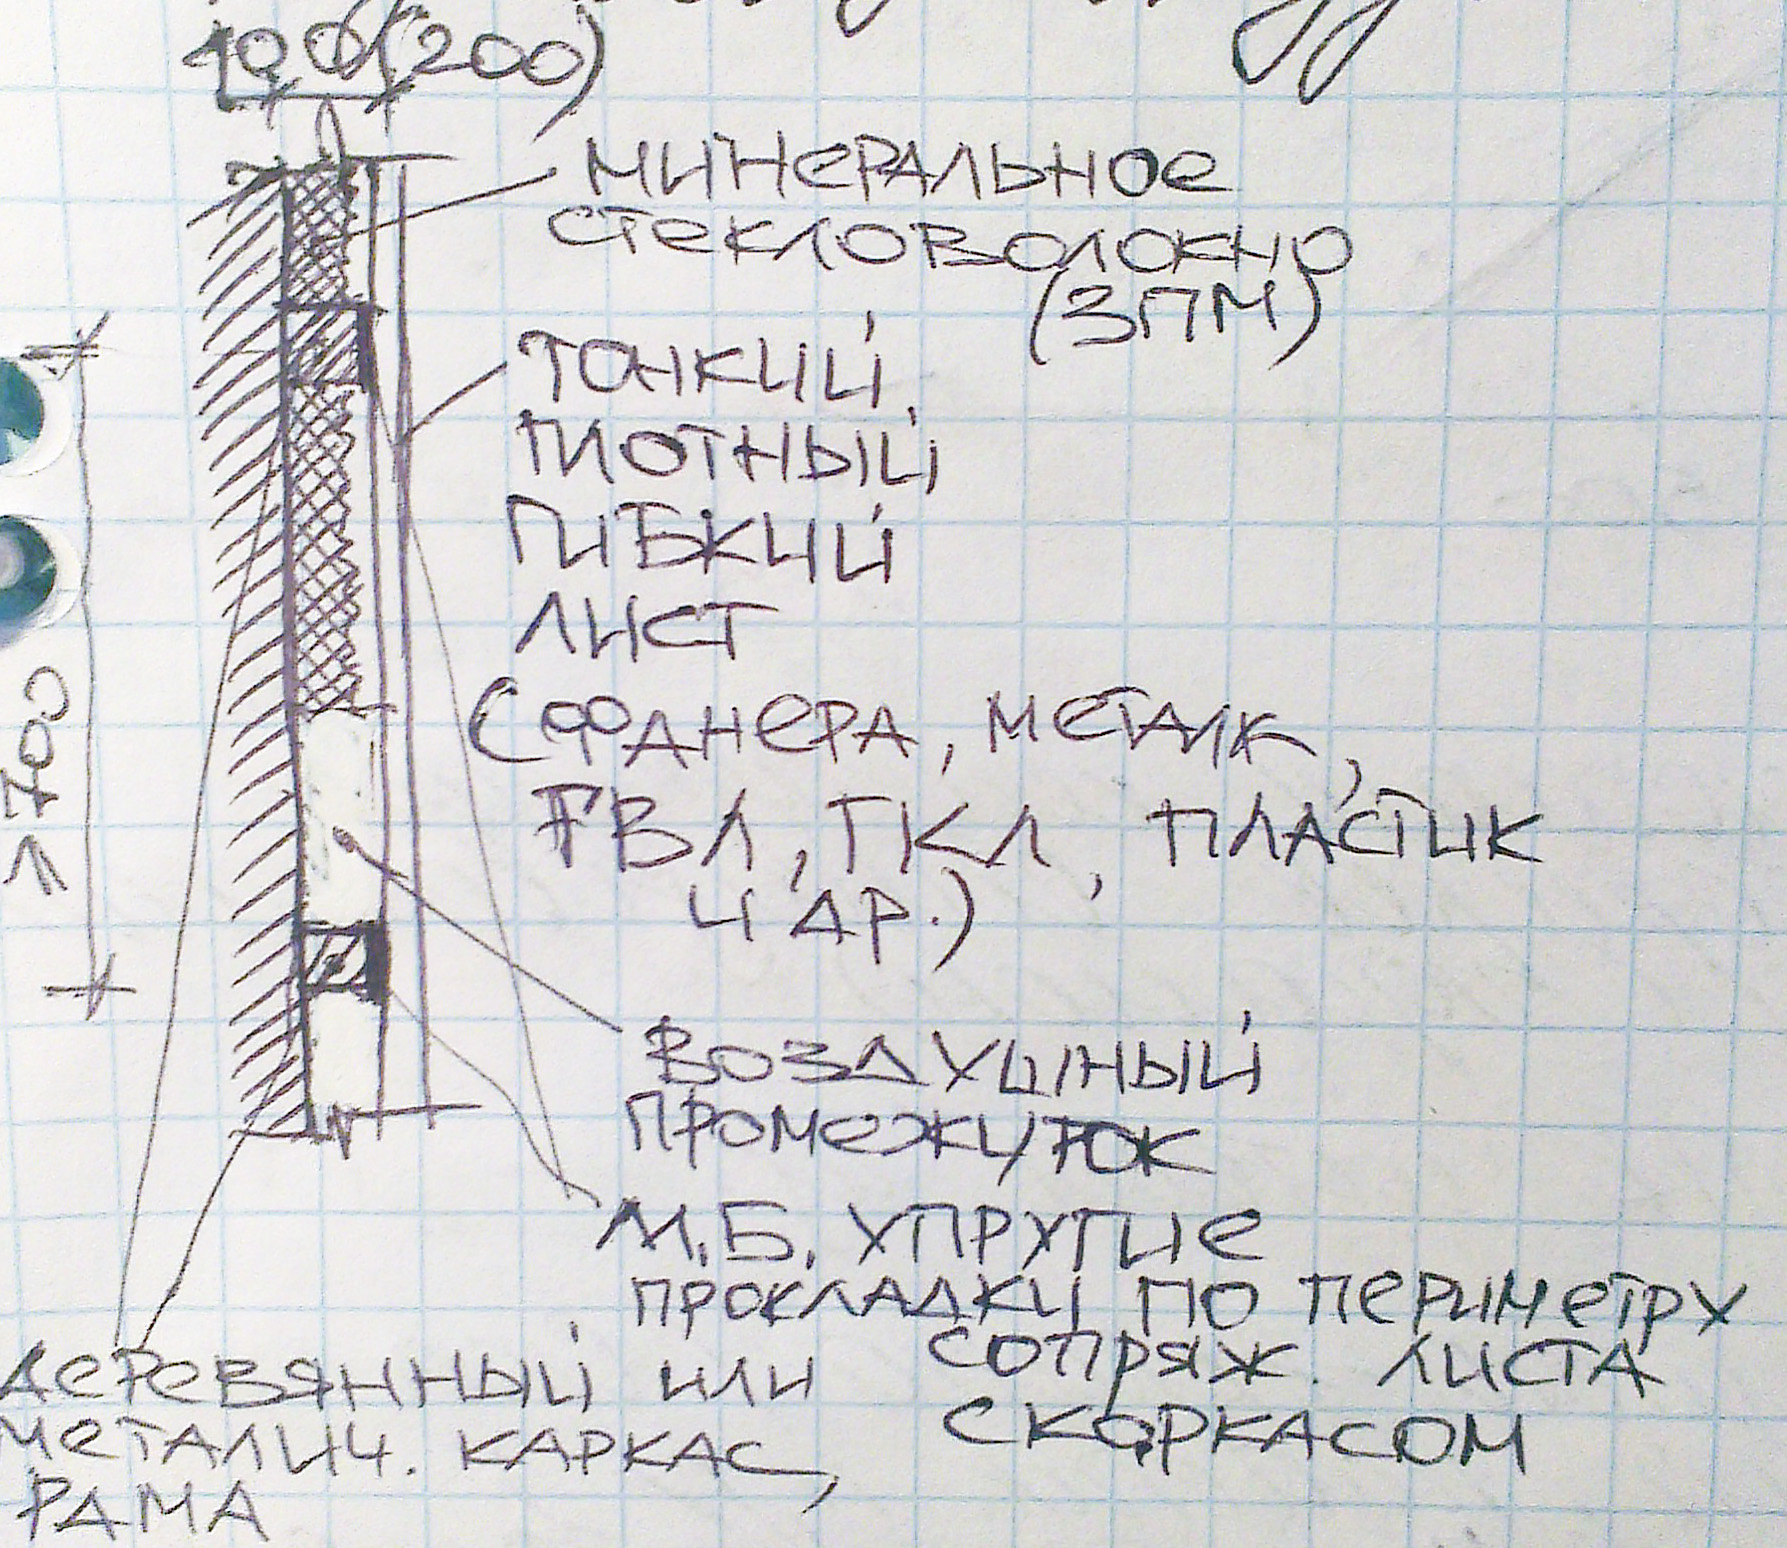 100 (200)
МИНЕРАЛЬНОЕ
СТЕКЛОВОЛОКНО
(ЗПМ)
ТОНКИЙ,
ПЛОТНЫЙ
ГИБКИЙ
ЛИСТ
(ФАНЕРА, МЕТАЛК,
ГВЛ, ГКЛ, ПЛАСТИК
И ДР.)
≥700
ВОЗДУШНЫЙ
ПРОМЕЖУТОК
М.Б. УПРУГИЕ
ПРОКЛАДКИ ПО ПЕРИМЕТРУ
СОПРЯЖ. ЛИСТА
С КАРКАСОМ
ДЕРЕВЯННЫЙ ИЛИ
МЕТАЛИЧ. КАРКАС,
РАМА